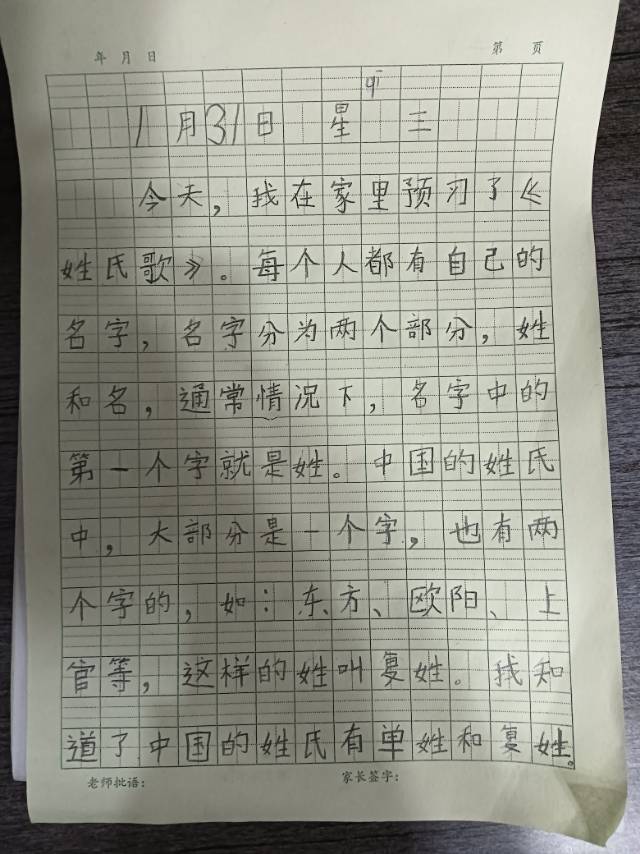 年 月 日 第 页
1月31日 星 三
今天，我在家里预习了《
姓氏歌》。每个人都有自己的
名字，名字分为两个部分，姓
和名，通常情况下，名字中的
第一个字就是姓。中国的姓氏
中，大部分是一个字，也有两
个字的，如：东方、欧阳、上
官等，这样的姓叫复姓。我知
道了中国的姓氏有单姓和复姓。
老师批语： 家长签字：